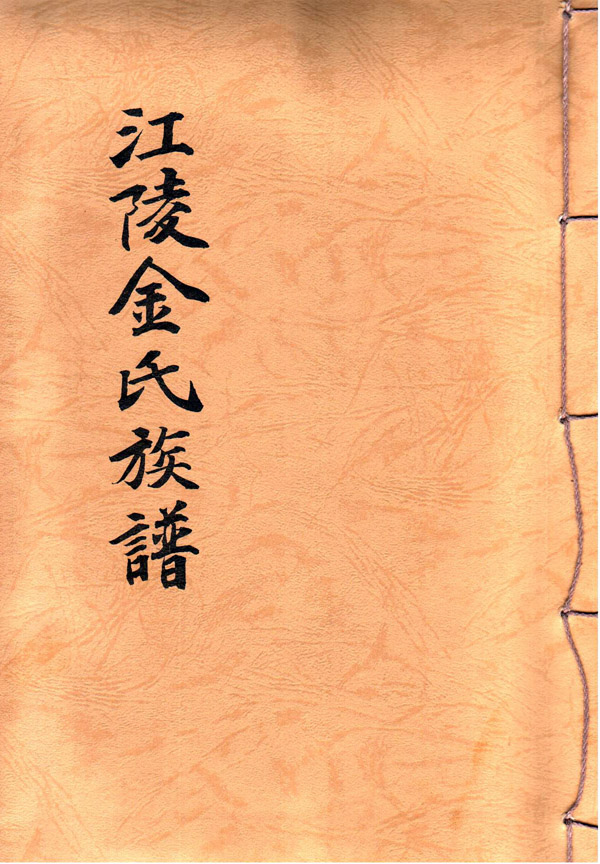 江陵金氏族譜